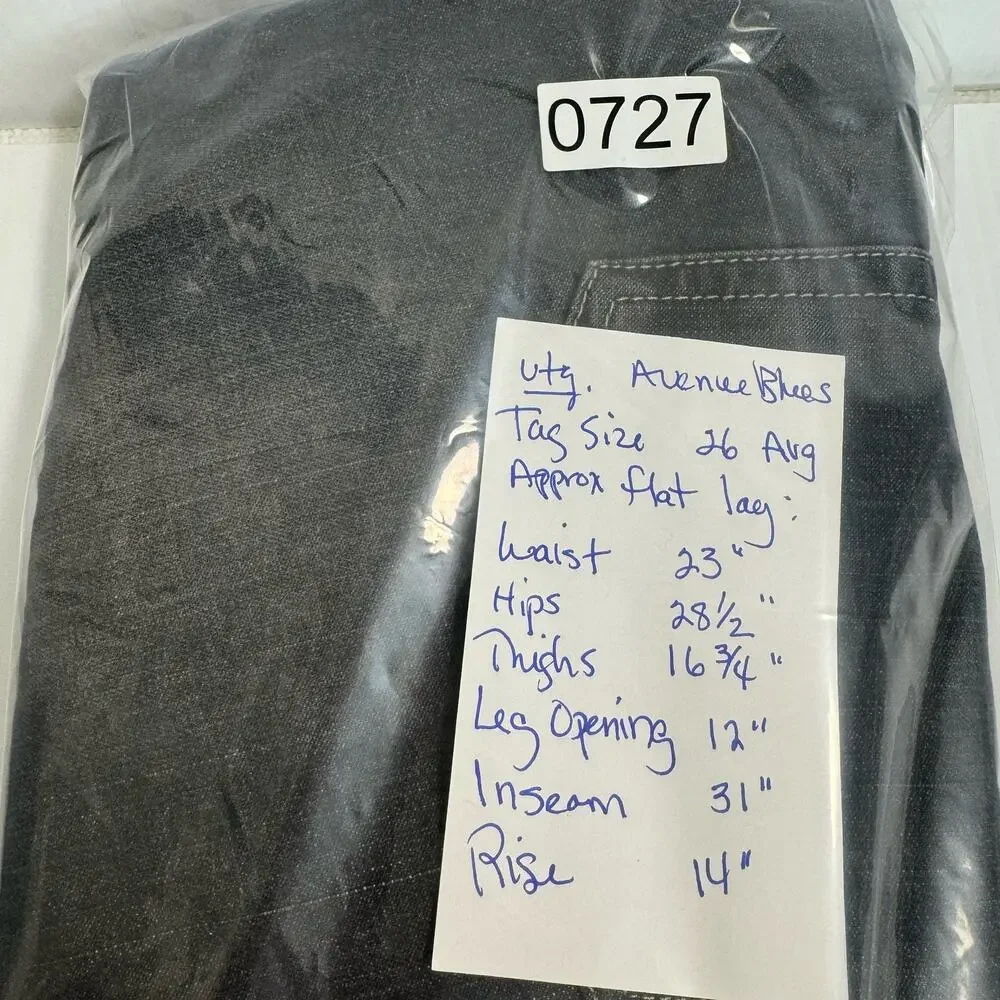 0727
vtg. Avenue Blues
Tag Size 26 Avg
Approx flat lay:
Waist 23"
Hips 28 1/2"
Thighs 16 3/4"
Leg Opening 12"
Inseam 31"
Rise 14"